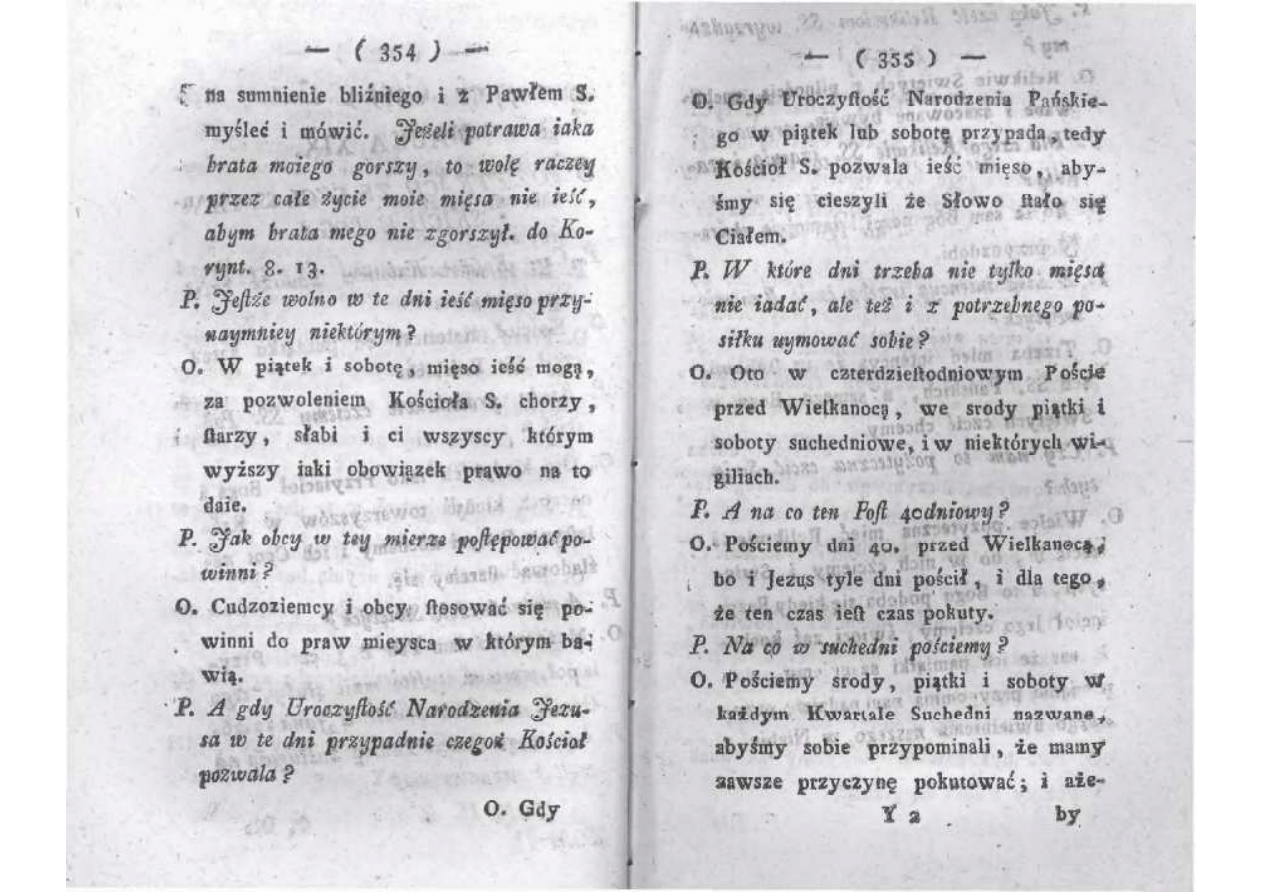 — ( 354 ) —
na sumnienie bliźniego i z Pawłem S.
myśleć i mówić. Jeżeli potrawa iaka
brata moiego gorszy, to wolę raczey
przez całe życie moie mięsa nie ieść,
abym brata mego nie zgorszył. do Ko-
rynt. 8. 13.
P. Jeſtże wolno w te dni ieść mięso przy-
naymniey niektórym?
O. W piątek i sobotę, mięso ieść mogą,
za pozwoleniem Kościoła S. chorzy,
ſtarzy, słabi i ci wszyscy którym
wyższy iaki obowiązek prawo na to
daie.
P. Jak obcy w tey mierze poſtępować po-
winni?
O. Cudzoziemcy i obcy ſtosować się po-
winni do praw mieysca w którym ba-
wią.
P. A gdy Uroczyſtość Narodzenia Jezu-
sa w te dni przypadnie czegoż Kościoł
pozwala?
O. Gdy
— ( 355 ) —
O. Gdy Uroczyſtość Narodzenia Pańskie-
go w piątek lub sobotę przypada, tedy
Kościoł S. pozwala ieść mięso, aby-
śmy się cieszyli że Słowo ſtało się
Ciałem.
P. W które dni trzeba nie tylko mięsa
nie iadać, ale też i z potrzebnego po-
siłku uymować sobie?
O. Oto w czterdzieſtodniowym Poście
przed Wielkanocą, we srody piątki i
soboty suchedniowe, i w niektórych wi-
giliach.
P. A na co ten Poſt 40dniowy?
O. Pościemy dni 40. przed Wielkanocą,
bo i Jezus tyle dni pościł, i dla tego,
że ten czas ieſt czas pokuty.
P. Na co w suchedni pościemy?
O. Pościemy srody, piątki i soboty w
każdym Kwartale Suchedni nazwane,
abyśmy sobie przypominali, że mamy
zawsze przyczynę pokutować; i aże-
Y 2 by